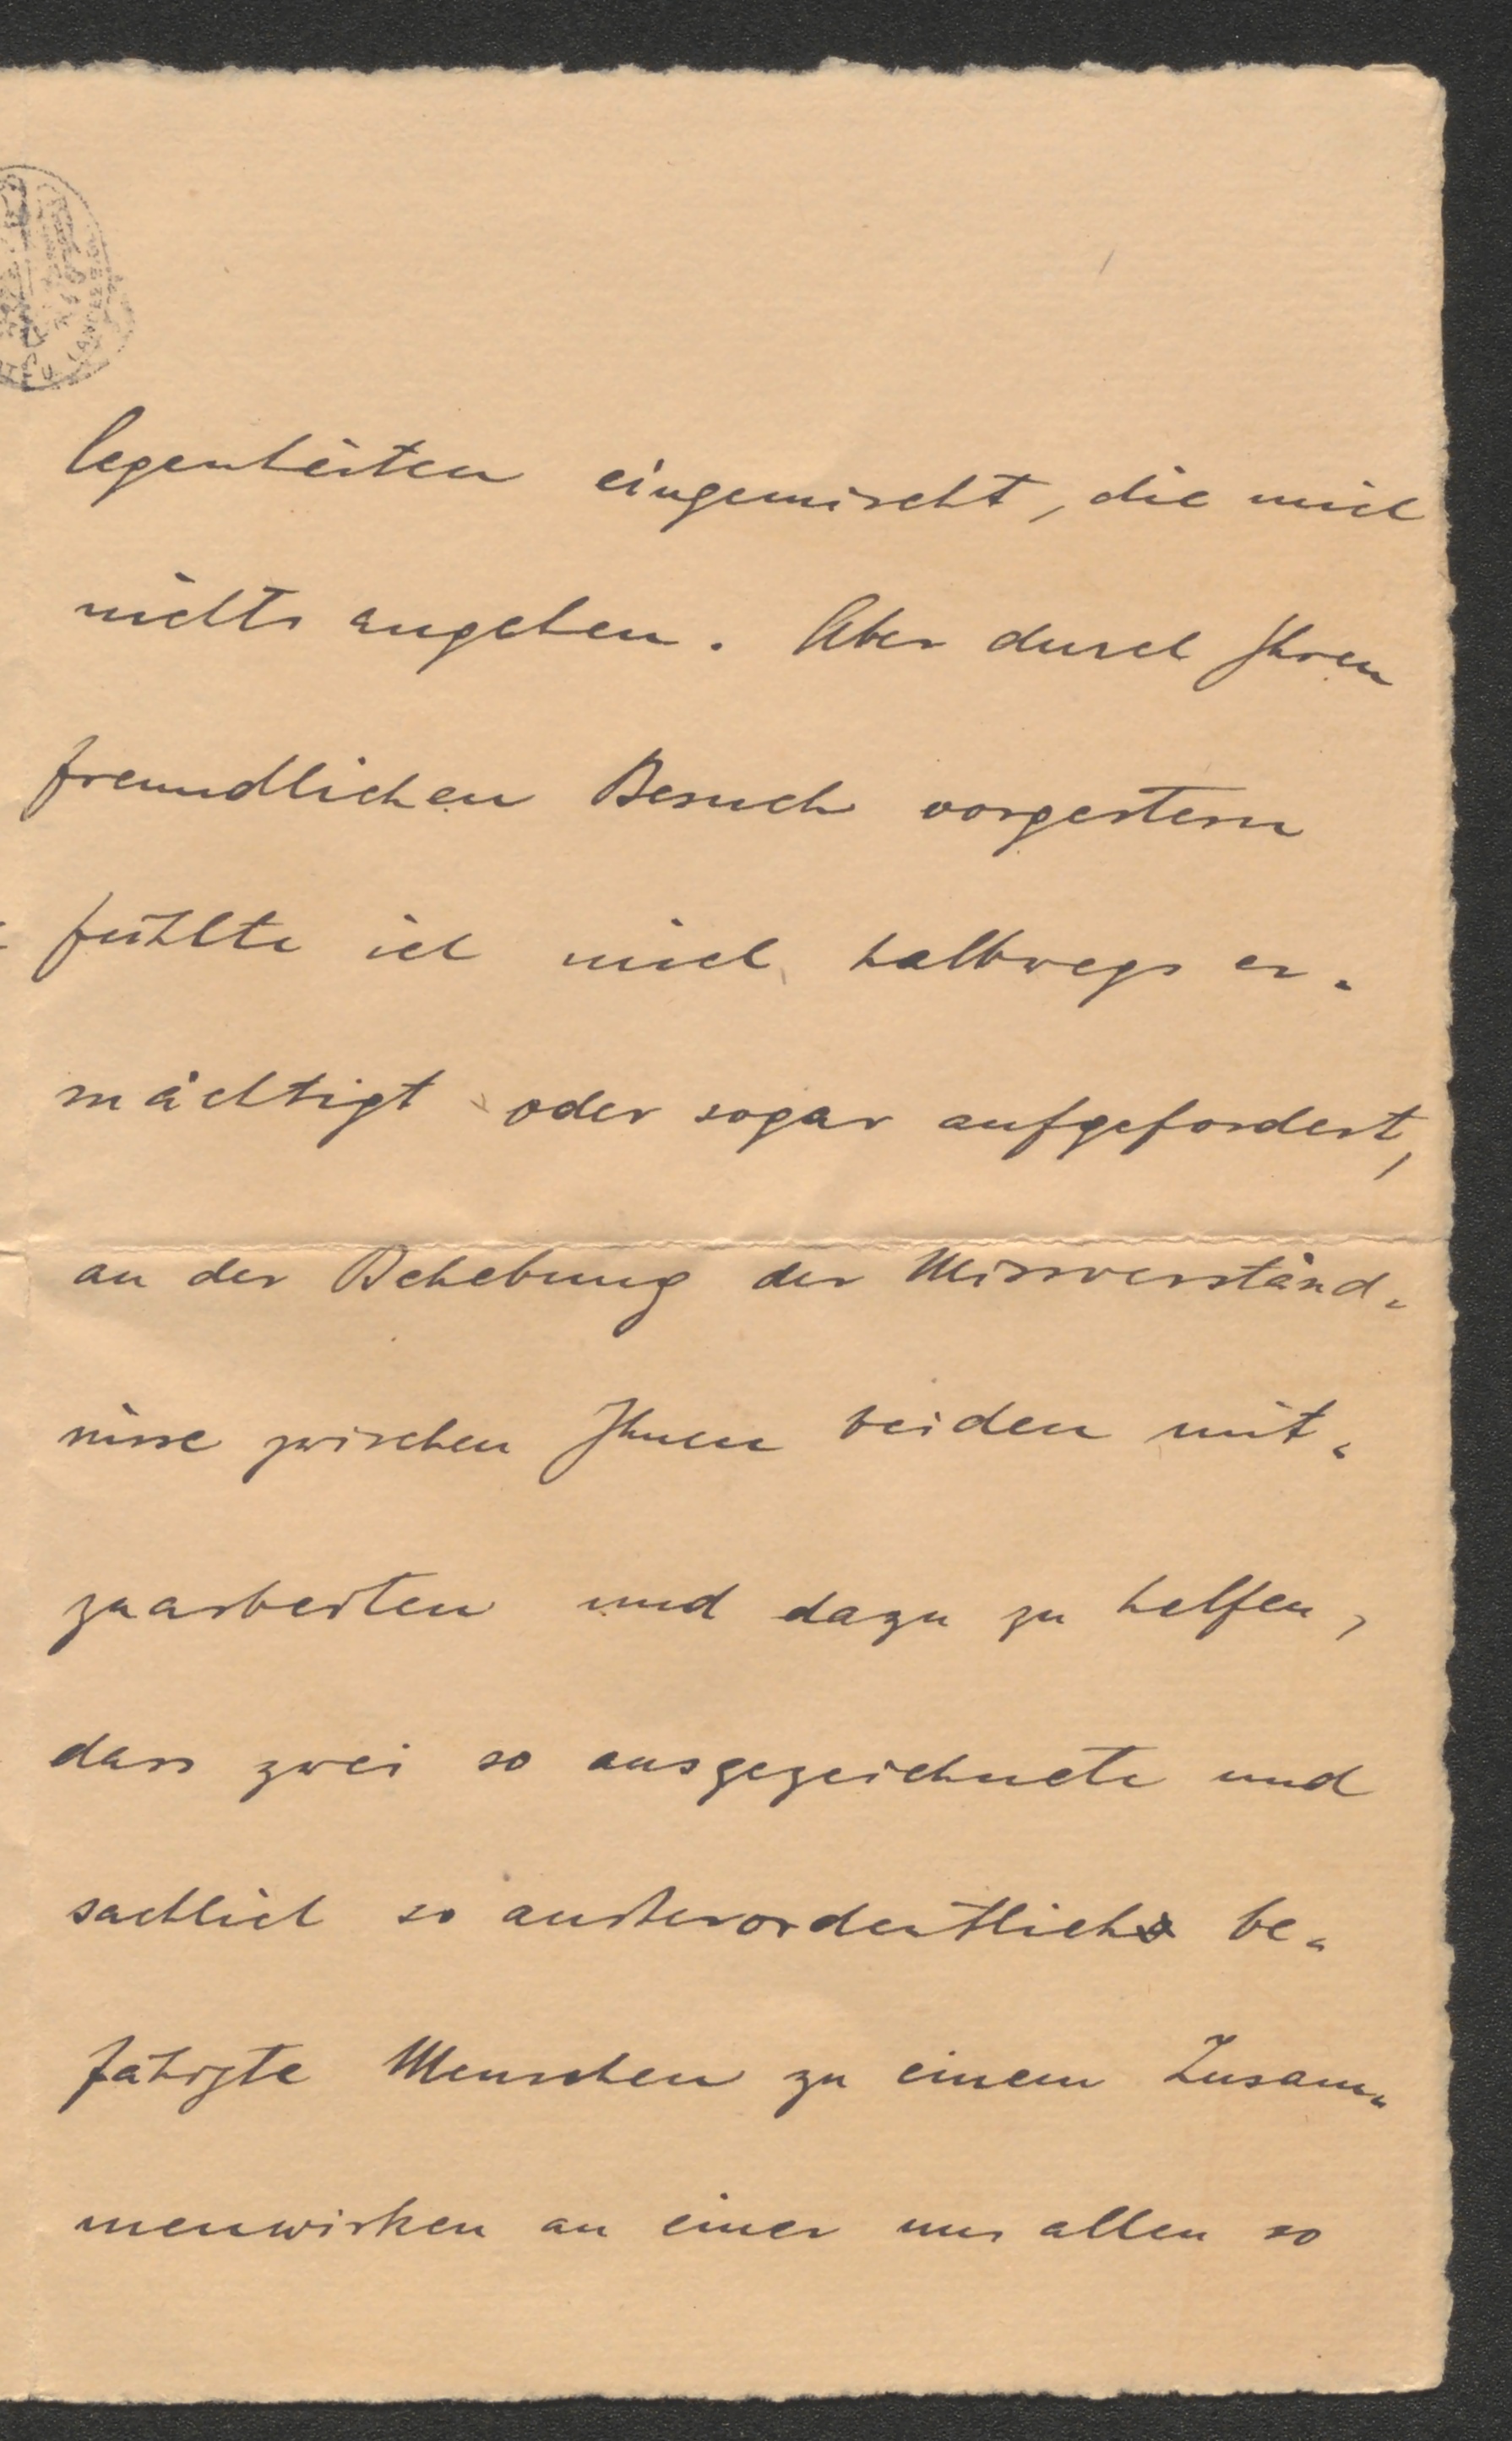 legenheiten eingemischt, die mich
nichts angehen. Aber durch Ihren
freundlichen Besuch vorgestern
fühlte ich mich halbwegs er-
mächtigt oder sogar aufgefordert,
an der Behebung der Missverständ-
nisse zwischen Ihnen beiden mit-
zuarbeiten und dazu zu helfen,
dass zwei so ausgezeichnete und
sachlich so außerordentlich be-
fähigte Menschen zu einem Zusam-
menwirken an einer uns allen so